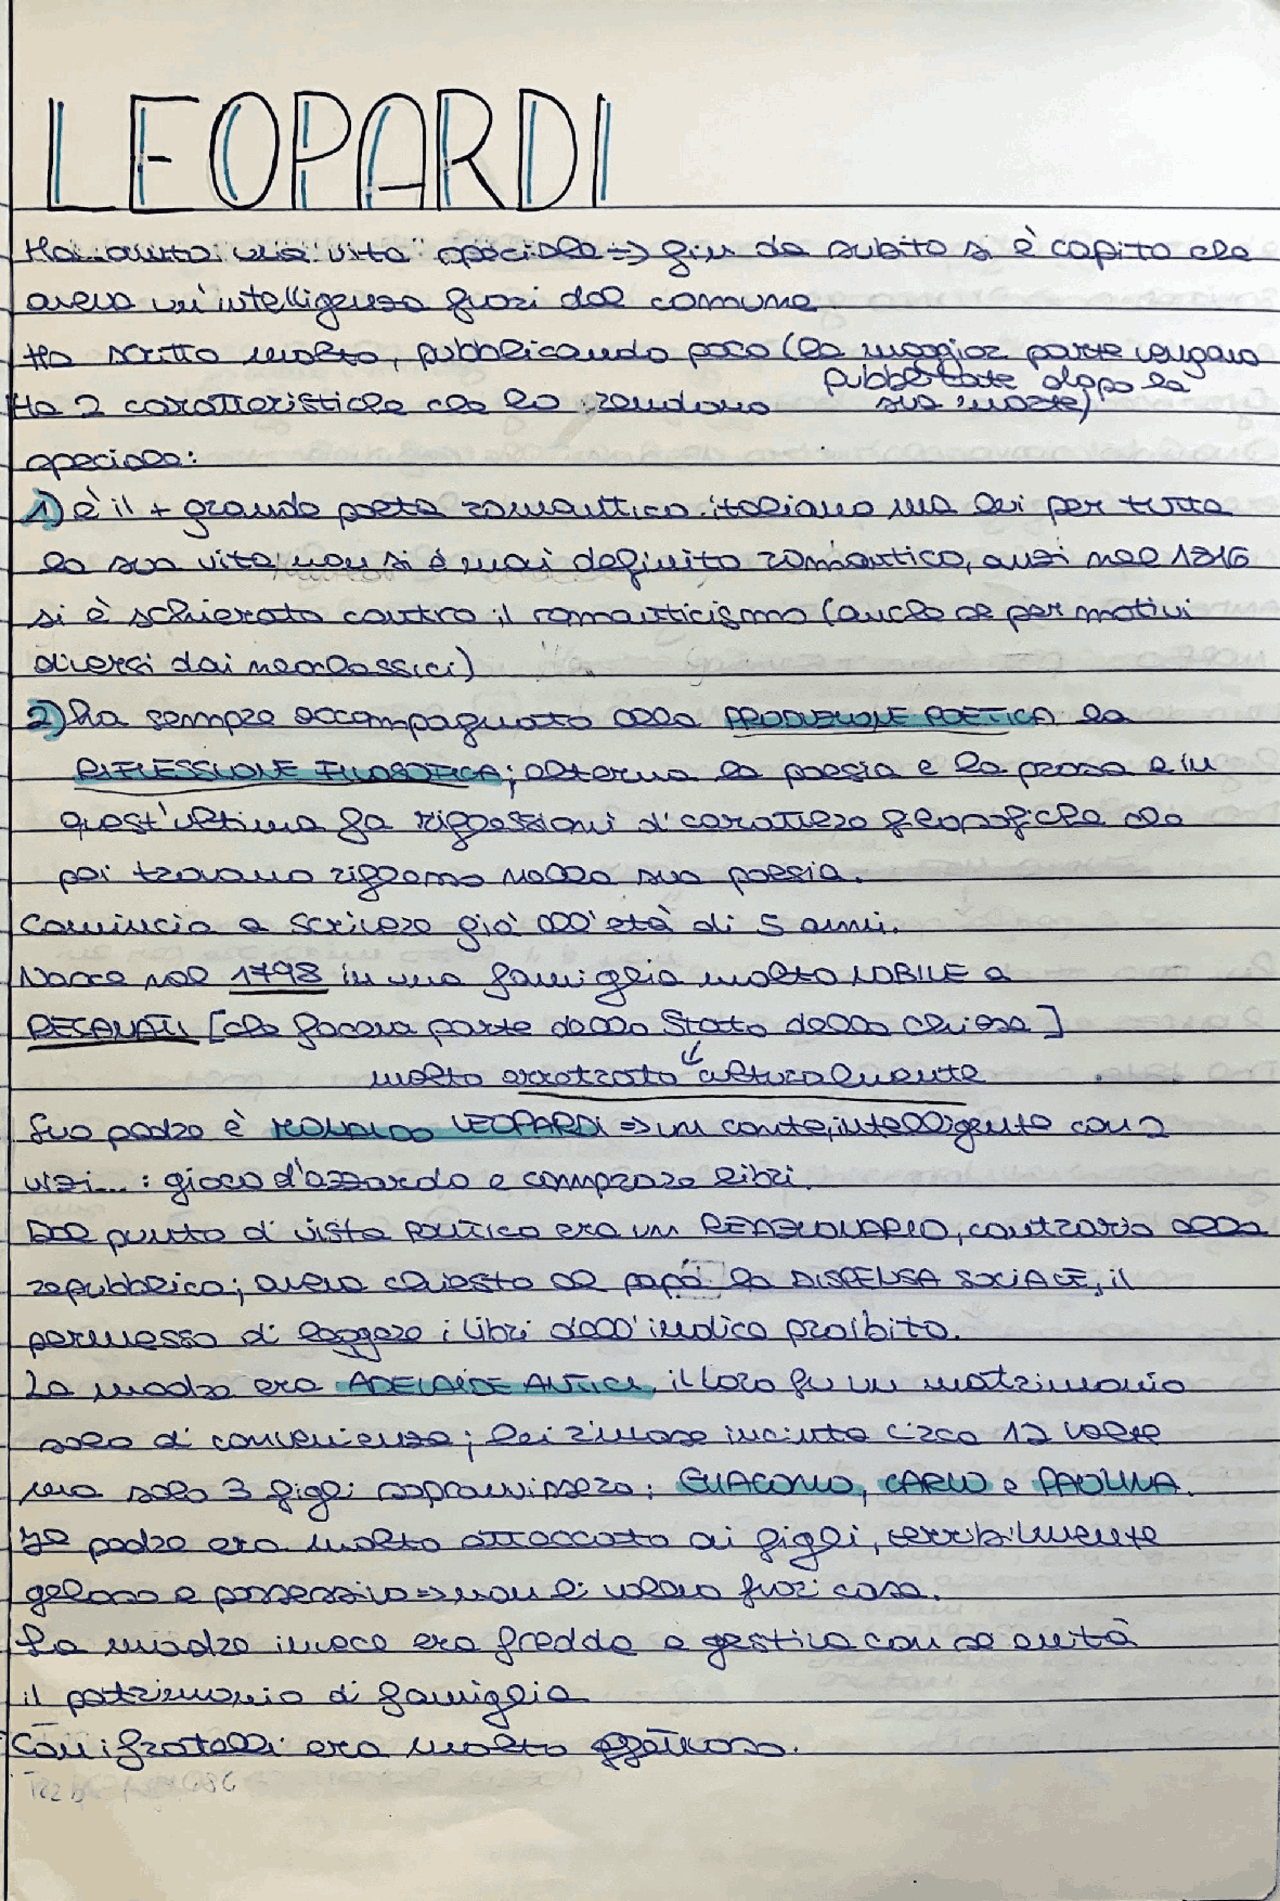 LEOPARDI
Ha avuto una "vita" speciale => fin da subito si è capito che
aveva un'intelligenza fuori dal comune
Ha scritto molto, pubblicando poco (la maggior parte vengano
pubblicate dopo la
sua morte)
Ha 2 caratteristiche che lo rendono
speciale:
1) è il + grande poeta romantico italiano ma lui per tutta
la sua vita non si è mai definito romantico, anzi nel 1816
si è schierato contro il romanticismo (anche se per motivi
diversi dai neoclassici)
2) ha sempre accompagnato alla PRODUZIONE POETICA la
RIFLESSIONE FILOSOFICA; alterna la poesia e la prosa e in
quest'ultima fa riflessioni di carattere filosofiche che
poi trovano riflesso nella sua poesia.
Comincia a scrivere già all'età di 5 anni.
Nasce nel 1798 in una famiglia molto NOBILE a
RECANATI [che faceva parte dello Stato della Chiesa]
molto arretrato culturalmente
Suo padre è MONALDO LEOPARDI => un conte, intelligente con 2
vizi...: gioco d'azzardo e comprare libri.
Dal punto di vista politico era un REAZIONARIO, contrario alla
repubblica; aveva chiesto al papa la DISPENSA SOCIALE, il
permesso di leggere i libri dell'indice proibito.
La madre era ADELAIDE ANTICI, il loro fu un matrimonio
solo di convenienza; lei rimase incinta circa 12 volte
ma solo 3 figli sopravvissero: GIACOMO, CARLO e PAOLINA.
Il padre era molto attaccato ai figli, terribilmente
geloso e possessivo => non li voleva fuori casa.
La madre invece era fredda e gestiva con severità
il patrimonio di famiglia
Con i fratelli era molto affettuoso.